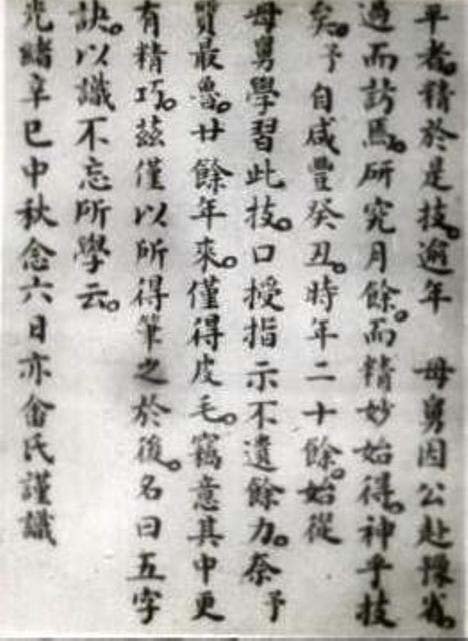 平者。精於是技。逾年　母舅因公赴豫省。
過而訪焉。研究月餘。而精妙始得。神乎技
矣。予自咸豐癸丑。時年二十餘。始從
母舅學習此技。口授指示不遺餘力。奈予
質最魯。廿餘年來。僅得皮毛。竊意其中更
有精巧。茲僅以所得筆之於後。名曰五字
訣。以識不忘所學云。
光緒辛巳中秋念六日亦畬氏謹識